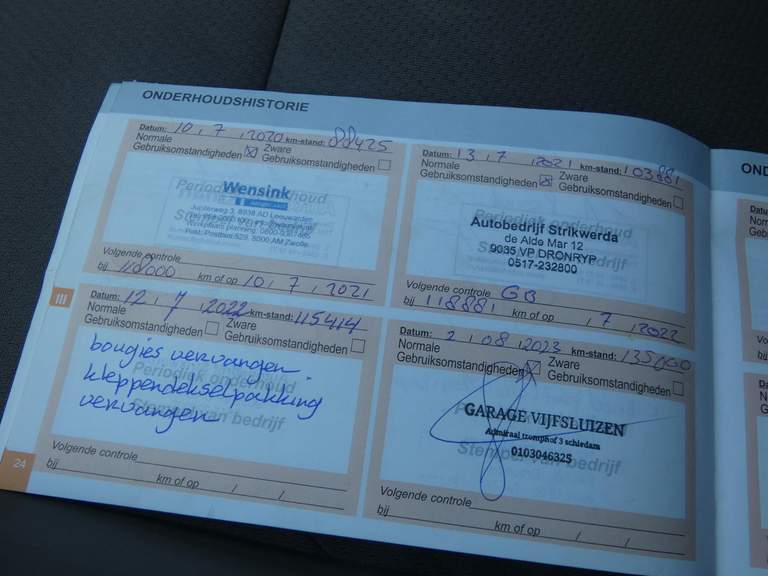 ONDERHOUDSHISTORIE
Datum: 10, 7, 2020 km-stand: 88425
Normale
Gebruiksomstandigheden
Zware
Gebruiksomstandigheden
Periodiek onderhoud
Wensink
Jupiterweg 3, 8938 AD Leeuwarden
Post: Postbus 529, 8000 AM Zwolle
Volgende controle
bij 118000 km of op 10, 7, 2021
Datum: 13, 7, 2021 km-stand: 103881
Normale
Gebruiksomstandigheden
Zware
Gebruiksomstandigheden
Periodiek onderhoud
Autobedrijf Strikwerda
de Alde Mar 12
9035 VP DRONRYP
0517-232800
Stempel van bedrijf
Volgende controle GB
bij 118881 km of op , 7, 2022
III
Datum: 12, 7, 2022 km-stand: 115414
Normale
Gebruiksomstandigheden
Zware
Gebruiksomstandigheden
bougies vervangen
Periodiek onderhoud
kleppendekselpakking
vervangen
Stempel van bedrijf
Volgende controle
bij km of op / /
Datum: 2, 08, 2023 km-stand: 135000
Normale
Gebruiksomstandigheden
Zware
Gebruiksomstandigheden
GARAGE VIJFSLUIZEN
Admiraal tromphof 3 schiedam
0103046325
Stempel van bedrijf
Volgende controle
bij km of op / /
24